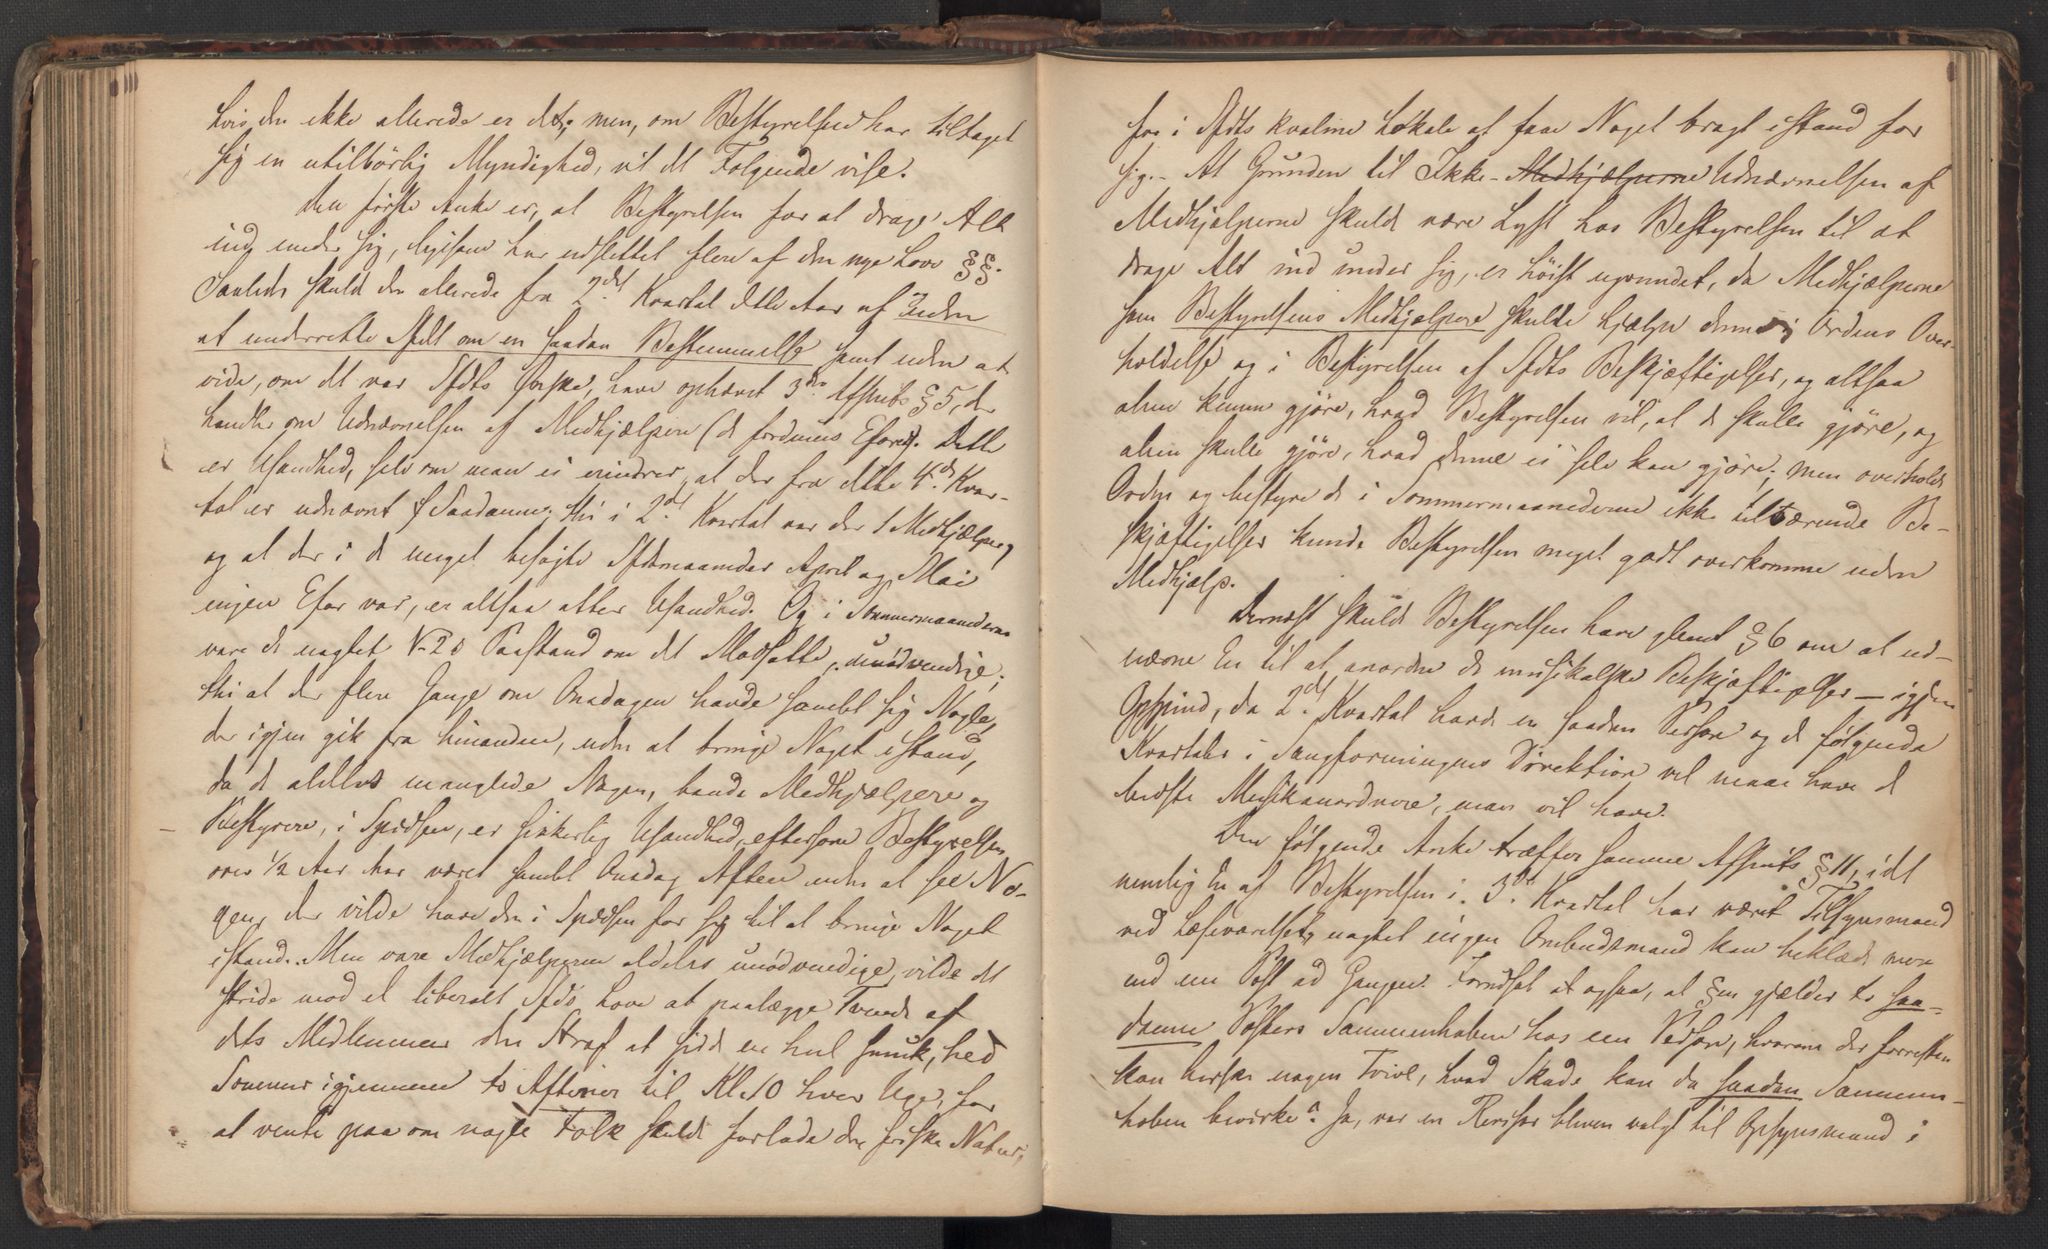 hvis den ikke allerede er det; men, om Bestyrelsen har tiltaget
sig en utilbörlig Myndighed, vil det Følgende vise.
Den förste Anke er, at Bestyrelsen for at drage Alt
ind under sig, ligesom har udslettet flere af den nye Lovs §§.
Saaledes skulde den allerede fra 2det Kvartal dette Aar af uden
at underrette Sfdt om en saadan Bestemmelse samt uden at
vide, om det var Sfdts Önske, have ophævet 3die Afsnits § 5, der
handler om Udnævnelsen af Medhjælpere (de fordums Eforer). Dette
er Usandhed, selv om man ei erindrer, at der fra dette 4de Kvar-
tal er udnævnt Saadanne; thi i 2det Kvartal var der 1 Medhjælper,
og at der i de meget besøgte Sfdsmaaneder April og Mai
ingen Efor var, er altsaa atter Usandhed. Og i Sommermaanederne
vare de uagtet N-20 Paastand om det Modsatte, unödvendige;
thi at der flere Gange om Onsdagen havde samlet sig Nogle,
der igjen gik fra hinanden, uden at bringe Noget istand,
da de aldeles manglede Nogen, baade Medhjælpere og
Bestyrere, i Spidsen, er sikkerlig Usandhed, eftersom Bestyrelsen
over 1/2 Aar har været samlet Onsdag Aften uden at see No-
gen, der vilde have den i Spidsen for sig til at bringe Noget
istand. Men vare Medhjælperne aldeles unödvendige, vilde det
stride mod et liberalt Sfds Love at paalægge Tvende af
dets Medlemmer den Straf at sidde en hel smuk, hed
Sommer igjennem to Aftener til Kl. 10 hver Uge, for
at vente paa om nogle Folk skulde forlade den friske Natur,
for i Sfdts kvalme Lokale at faae Noget bragt istand for
sig. - At Grunden til Ikke-Medhjælperne Udnævnelsen af
Medhjælperne skulde være Lyst hos Bestyrelsen til at
drage Alt ind under sig, er höist ugrundet, da Medhjælperne
som Bestyrelsens Medhjælpere skulle hjælpe denne i Ordens Over-
holdelse og i Bestyrelsen af Sfdts Beskjæftigelser, og altsaa
alene kunne gjöre, hvad Bestyrelsen vil, at de skulle gjöre, og
alene skulle gjöre, hvad denne ei selv kan gjöre; men overholde
Orden og bestyre de i Sommermaanederne ikke tilværende Be-
skjæftigelser kunde Bestyrelsen meget godt overkomme uden
Medhjælp.
Dernæst skulde Bestyrelsen have glemt § 6 om at ud-
nævne En til at anordne de musikalske Beskjæftigelser - igjen
Opspind, da 2det Kvartal havde en saadan Person og de følgende
Kvartaler i Sangforeningens Direktion vel maae have de
bedste Musikanordnere, man vil have.
Den følgende Anke træffer samme Afsnits § 11, idet
nemlig En af Bestyrelsen i 3die Kvartal har været Tilsynsmand
ved Læseværelset, uagtet ingen Ombudsmand kan beklæde mere
end een Post ad Gangen. Forudsat at ogsaa, at §en gjælder to saa-
danne Posters Sammenhaben hos een Person, hvorom der forresten
kan herske nogen Tvivl, hvad Skade kan da saadan Sammen-
haben bevirke? Ja, var en Revisor bleven valgt til Opsynsmand i